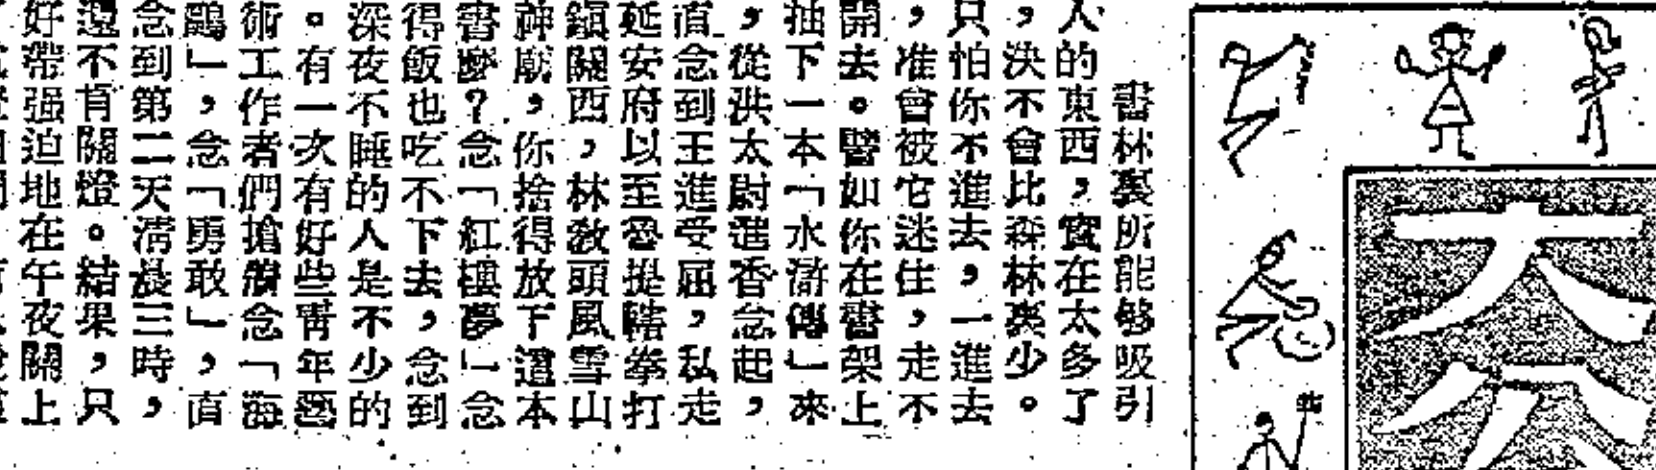 書林裏所能够吸引
人的東西，實在太多了
，决不會比森林裏少。
只怕你不進去，一進去
，准會被它迷住，走不
開去。譬如你在書架上
抽下一本「水滸傳」來
，從洪太尉進香念起，
直念到王進受屈，私走
延安府以至魯提轄拳打
鎮關西，林敎頭風雪山
神廟，你捨得放下這本
書麽？念「紅樓夢」念
得飯也吃不下去，念到
深夜不睡的人是不少的
。有一次有好些靑年藝
術工作者們搶着念「海
鷗」，念「勇敢」，直
念到第二天淸晨三時，
還不肯關燈。結果，只
好帶强迫地在午夜關上